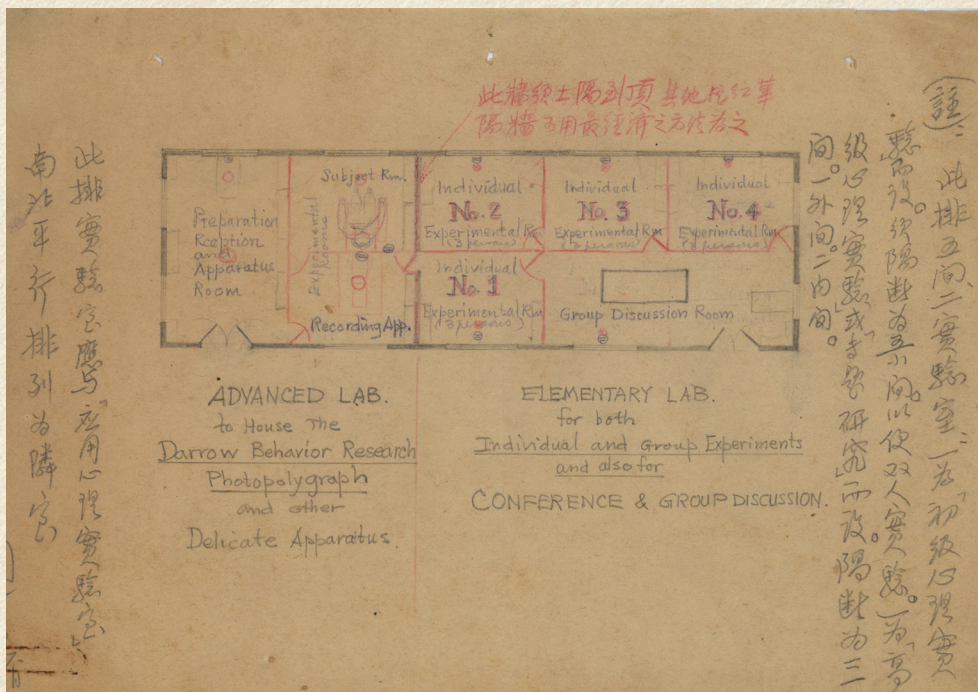 (註): 此排五間二實驗室: 一為「初級心理實
驗」而設。須隔斷為五小間。以便双人實驗。一為「高
級心理實驗」或「專題研究」而設。隔斷為三
間。一外間。二內間。
此牆須土隔到頂 其他凡紅筆
隔牆可用最經濟之方法為之
Preparation
Rception
and
Apparatus
Room
Subject Rm.
Experimental
Rooms
Recording App.
Individual
No. 2
Experimental Rm
(3 persons)
Individual
No. 3
Experimental Rm
(3 persons)
Individual
No. 4
Experimental Rm
(3 persons)
Individual
No. 1
Experimental Rm
(3 persons)
Group Discussion Room
ADVANCED LAB.
to House The
Darrow Behavior Research
Photopolygraph
and other
Delicate Apparatus.
ELEMENTARY LAB.
for both
Individual and Group Experiments
and also for
CONFERENCE & GROUP DISCUSSION.
此排實驗室應与「应用心理實驗室」
南北平行排列為隣室